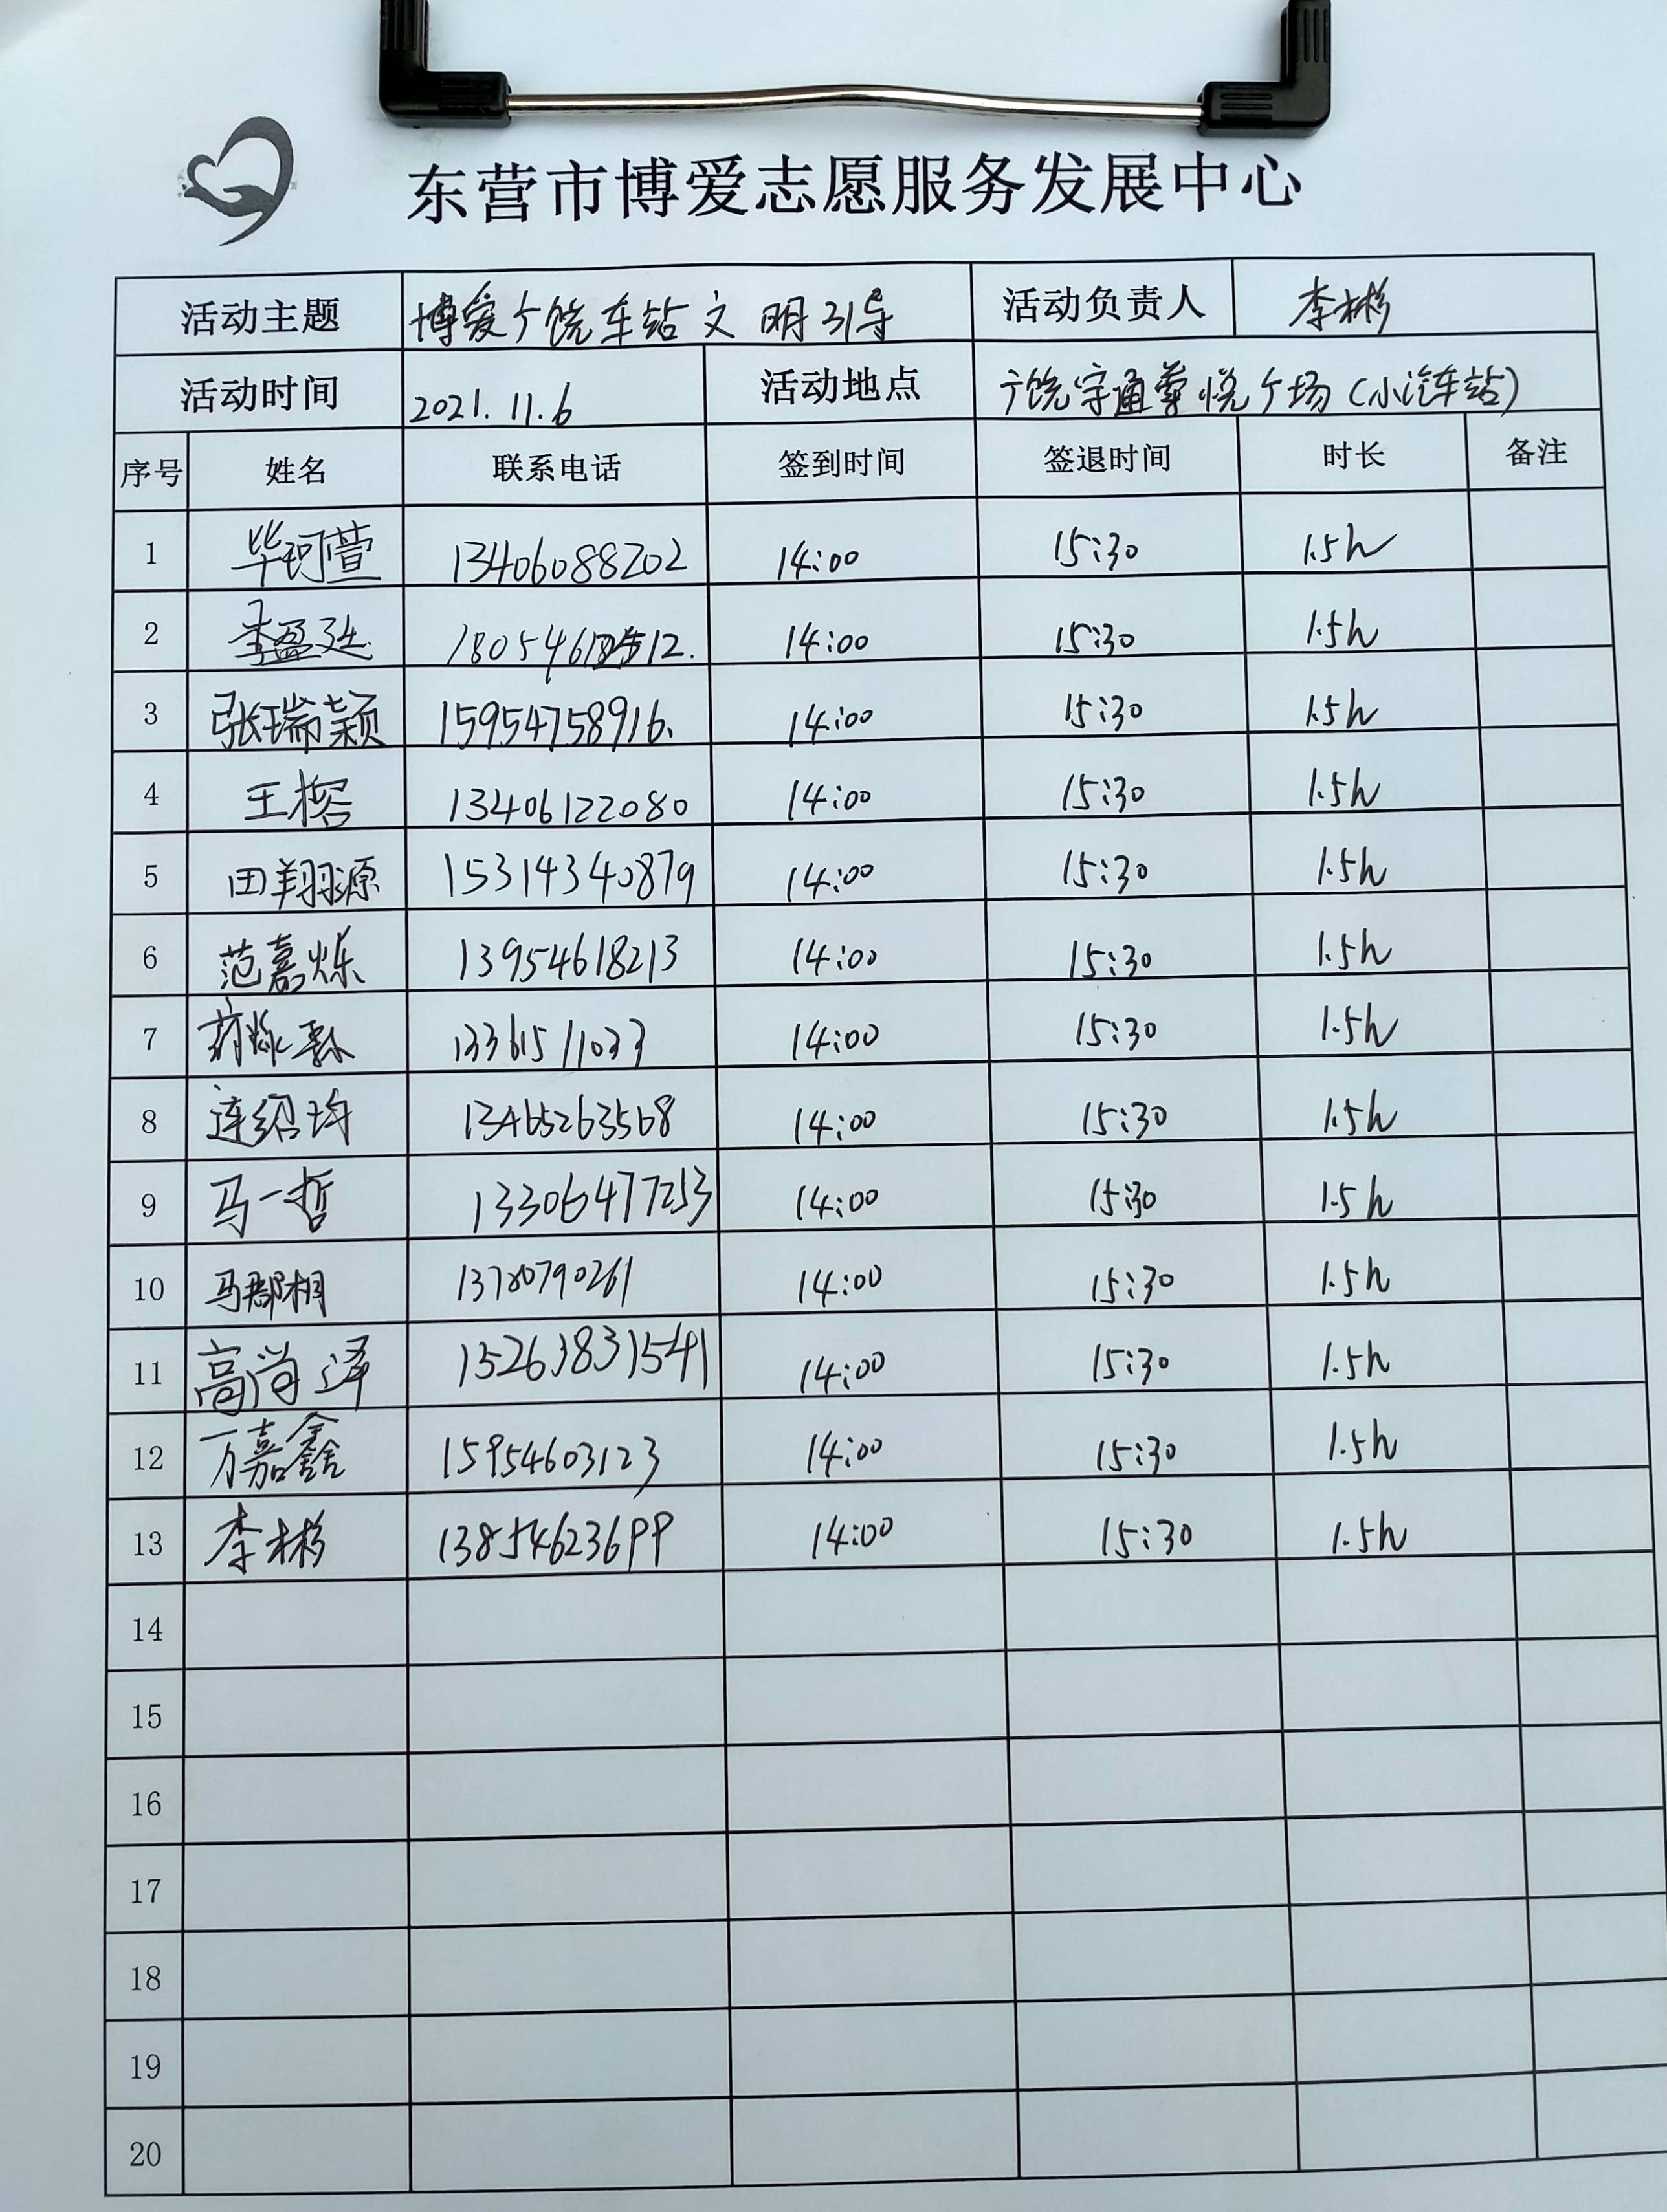 东营市博爱志愿服务发展中心
活动主题 博爱广饶车站文明引导 活动负责人 李彬
活动时间 2021.11.6 活动地点 广饶宇通尊悦广场(小汽车站)
序号 姓名 联系电话 签到时间 签退时间 时长 备注
1 毕珂萱 13406088202 14:00 15:30 1.5h
2 李盈廷 14:00 15:30 1.5h
3 张瑞颖 15954758916. 14:00 15:30 1.5h
4 王榕 13406122080 14:00 15:30 1.5h
5 田翔源 15314340879 14:00 15:30 1.5h
6 范嘉烁 13954618213 14:00 15:30 1.5h
7 13361511033 14:00 15:30 1.5h
8 连绍均 13465263568 14:00 15:30 1.5h
9 马一哲 13306477253 14:00 15:30 1.5h
10 马郡栩 13780790261 14:00 15:30 1.5h
11 高尚泽 15263831541 14:00 15:30 1.5h
12 万嘉鑫 15954603123 14:00 15:30 1.5h
13 李彬 13854623699 14:00 15:30 1.5h
14
15
16
17
18
19
20